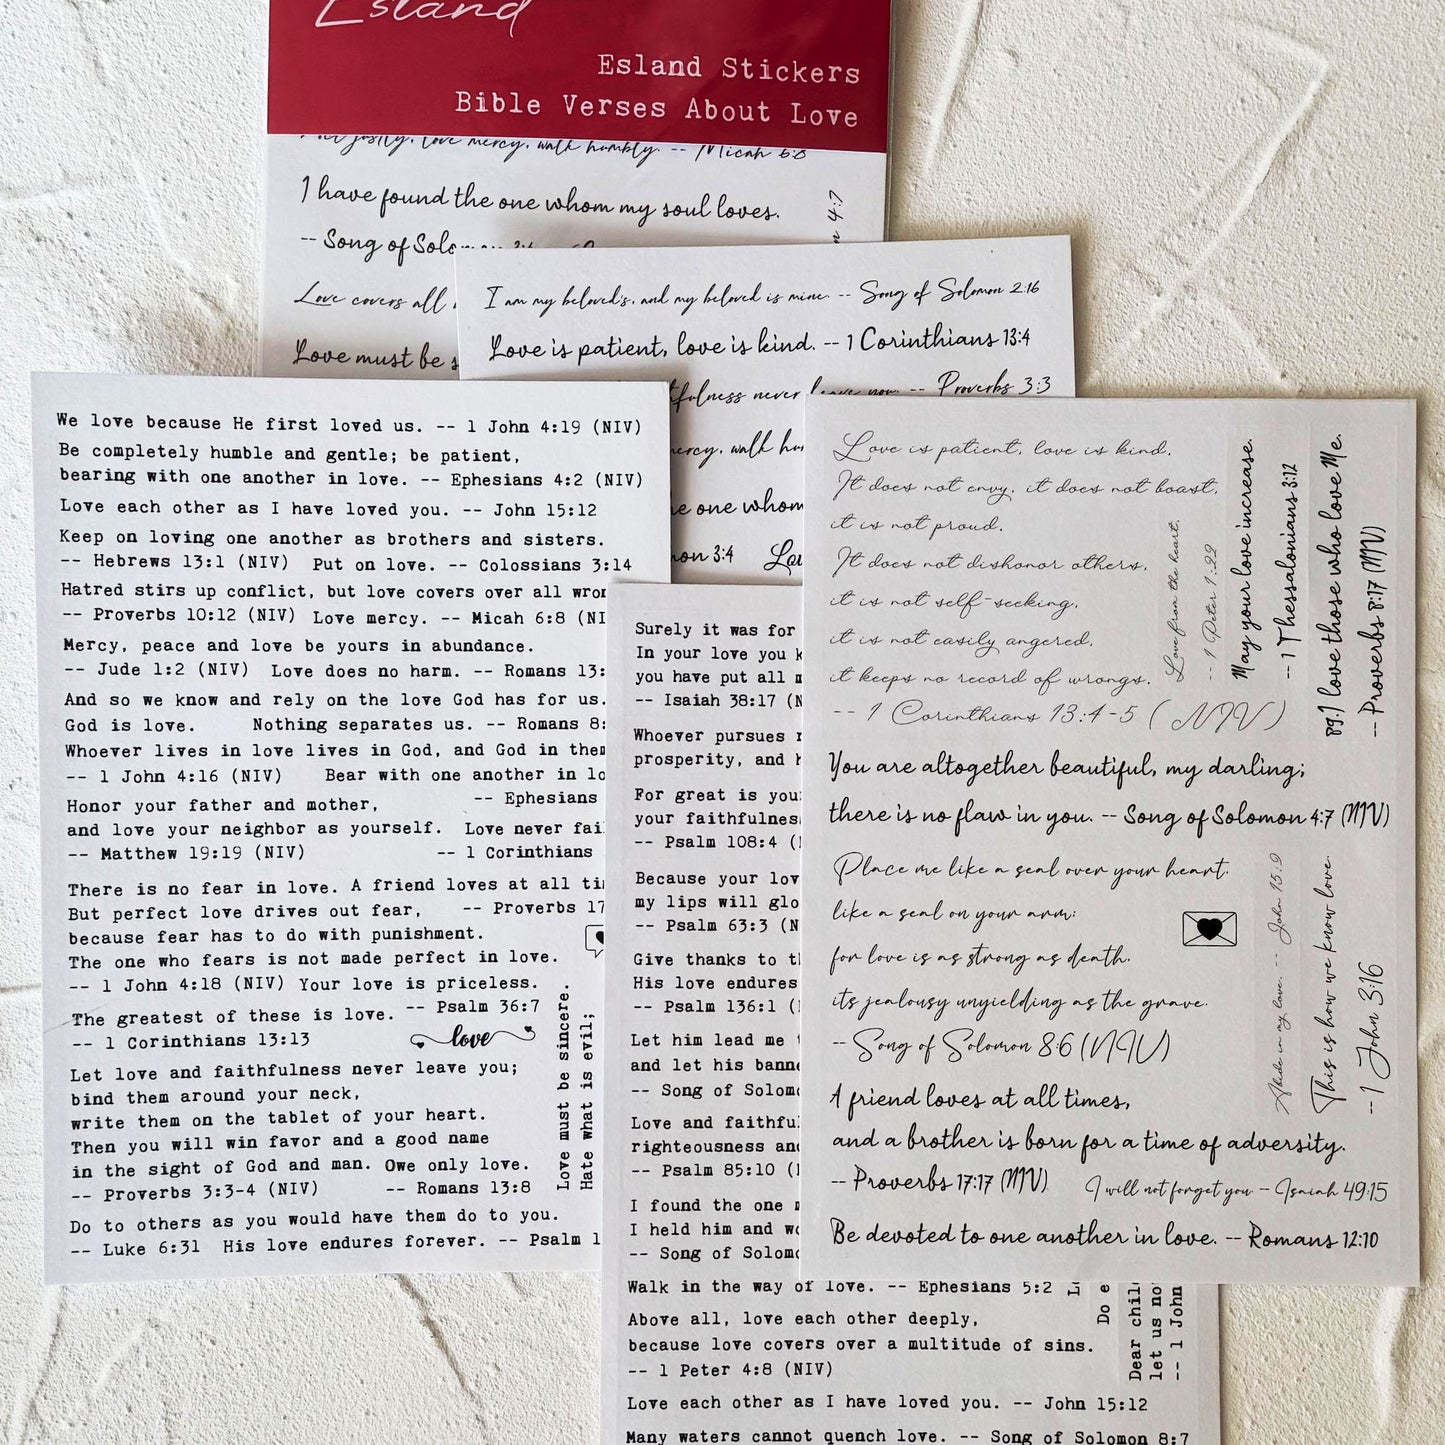 Esland
Esland Stickers
Bible Verses About Love
justly, love mercy, walk humbly. -- Micah 6:8
I have found the one whom my soul loves.
-- Song of
4:7
Love covers all
Love must be
I am my beloved's, and my beloved is mine -- Song of Solomon 2:16
Love is patient, love is kind. -- 1 Corinthians 13:4
never leave you. -- Proverbs 3:3
walk
the one whom
3:4
We love because He first loved us. -- 1 John 4:19 (NIV)
Be completely humble and gentle; be patient,
bearing with one another in love. -- Ephesians 4:2 (NIV)
Love each other as I have loved you. -- John 15:12
Keep on loving one another as brothers and sisters.
-- Hebrews 13:1 (NIV) Put on love. -- Colossians 3:14
Hatred stirs up conflict, but love covers over all
-- Proverbs 10:12 (NIV) Love mercy. -- Micah 6:8
Mercy, peace and love be yours in abundance.
-- Jude 1:2 (NIV) Love does no harm. -- Romans 13:
And so we know and rely on the love God has for us.
God is love. Nothing separates us. -- Romans 8:
Whoever lives in love lives in God, and God in
-- 1 John 4:16 (NIV) Bear with one another in
-- Ephesians
Honor your father and mother,
and love your neighbor as yourself. Love never
-- Matthew 19:19 (NIV) -- 1 Corinthians
There is no fear in love. A friend loves at all
But perfect love drives out fear, -- Proverbs 17
because fear has to do with punishment.
The one who fears is not made perfect in love.
-- 1 John 4:18 (NIV) Your love is priceless.
-- Psalm 36:7
The greatest of these is love.
-- 1 Corinthians 13:13
love
Let love and faithfulness never leave you;
bind them around your neck,
write them on the tablet of your heart.
Then you will win favor and a good name
in the sight of God and man. Owe only love.
-- Proverbs 3:3-4 (NIV) -- Romans 13:8
Love must be sincere.
Hate what is evil;
Do to others as you would have them do to you.
-- Luke 6:31 His love endures forever. -- Psalm 1
Surely it was for
In your love you
you have put all
-- Isaiah 38:17
Whoever pursues
prosperity, and
For great is
your
-- Psalm 108:4
Because your
my lips will
-- Psalm 63:3
Give thanks to
His love endures
-- Psalm 136:1
Let him lead me
and let his
-- Song of
Love and
righteousness
-- Psalm 85:10
I found the one
I held him and
-- Song of
Walk in the way of love. -- Ephesians 5:2
Above all, love each other deeply,
because love covers over a multitude of sins.
-- 1 Peter 4:8 (NIV)
Love each other as I have loved you. -- John 15:12
Many waters cannot quench love. -- Song of Solomon 8:7
Do
Dear
let us
-- 1 John
Love is patient, love is kind.
It does not envy, it does not boast,
it is not proud.
It does not dishonor others,
it is not self-seeking,
it is not easily angered,
it keeps no record of wrongs.
-- 1 Corinthians 13:4-5 (NIV)
Love from the heart.
-- 1 Peter 1:22
May your love increase.
--1 Thessalonians 3:12
89.I love those who love Me.
-- Proverbs 8:17 (NIV)
You are altogether beautiful, my darling;
there is no flaw in you. -- Song of Solomon 4:7 (NIV)
Place me like a seal over your heart,
like a seal on your arm;
for love is as strong as death,
its jealousy unyielding as the grave.
-- Song of Solomon 8:6 (NIV)
Abide in my love. -- John 15:9
This is how we know love
--1 John 3:16
A friend loves at all times,
and a brother is born for a time of adversity.
-- Proverbs 17:17 (NIV) I will not forget you - Isaiah 49:15
Be devoted to one another in love. -- Romans 12:10